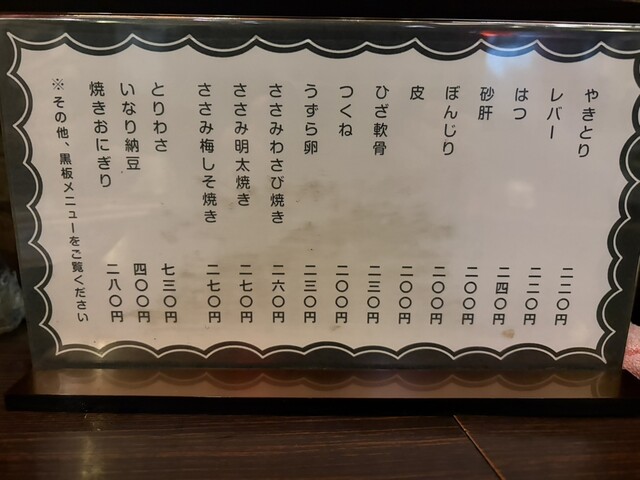 やきとり 二二〇円
レバー 二二〇円
はつ 二四〇円
砂肝 二〇〇円
ぼんじり 二〇〇円
皮 二〇〇円
ひざ軟骨 二三〇円
つくね 二〇〇円
うずら卵 二三〇円
ささみわさび焼き 二六〇円
ささみ明太焼き 二七〇円
ささみ梅しそ焼き 二七〇円
とりわさ 七三〇円
いなり納豆 四〇〇円
焼きおにぎり 二八〇円
※その他、黒板メニューをご覧ください